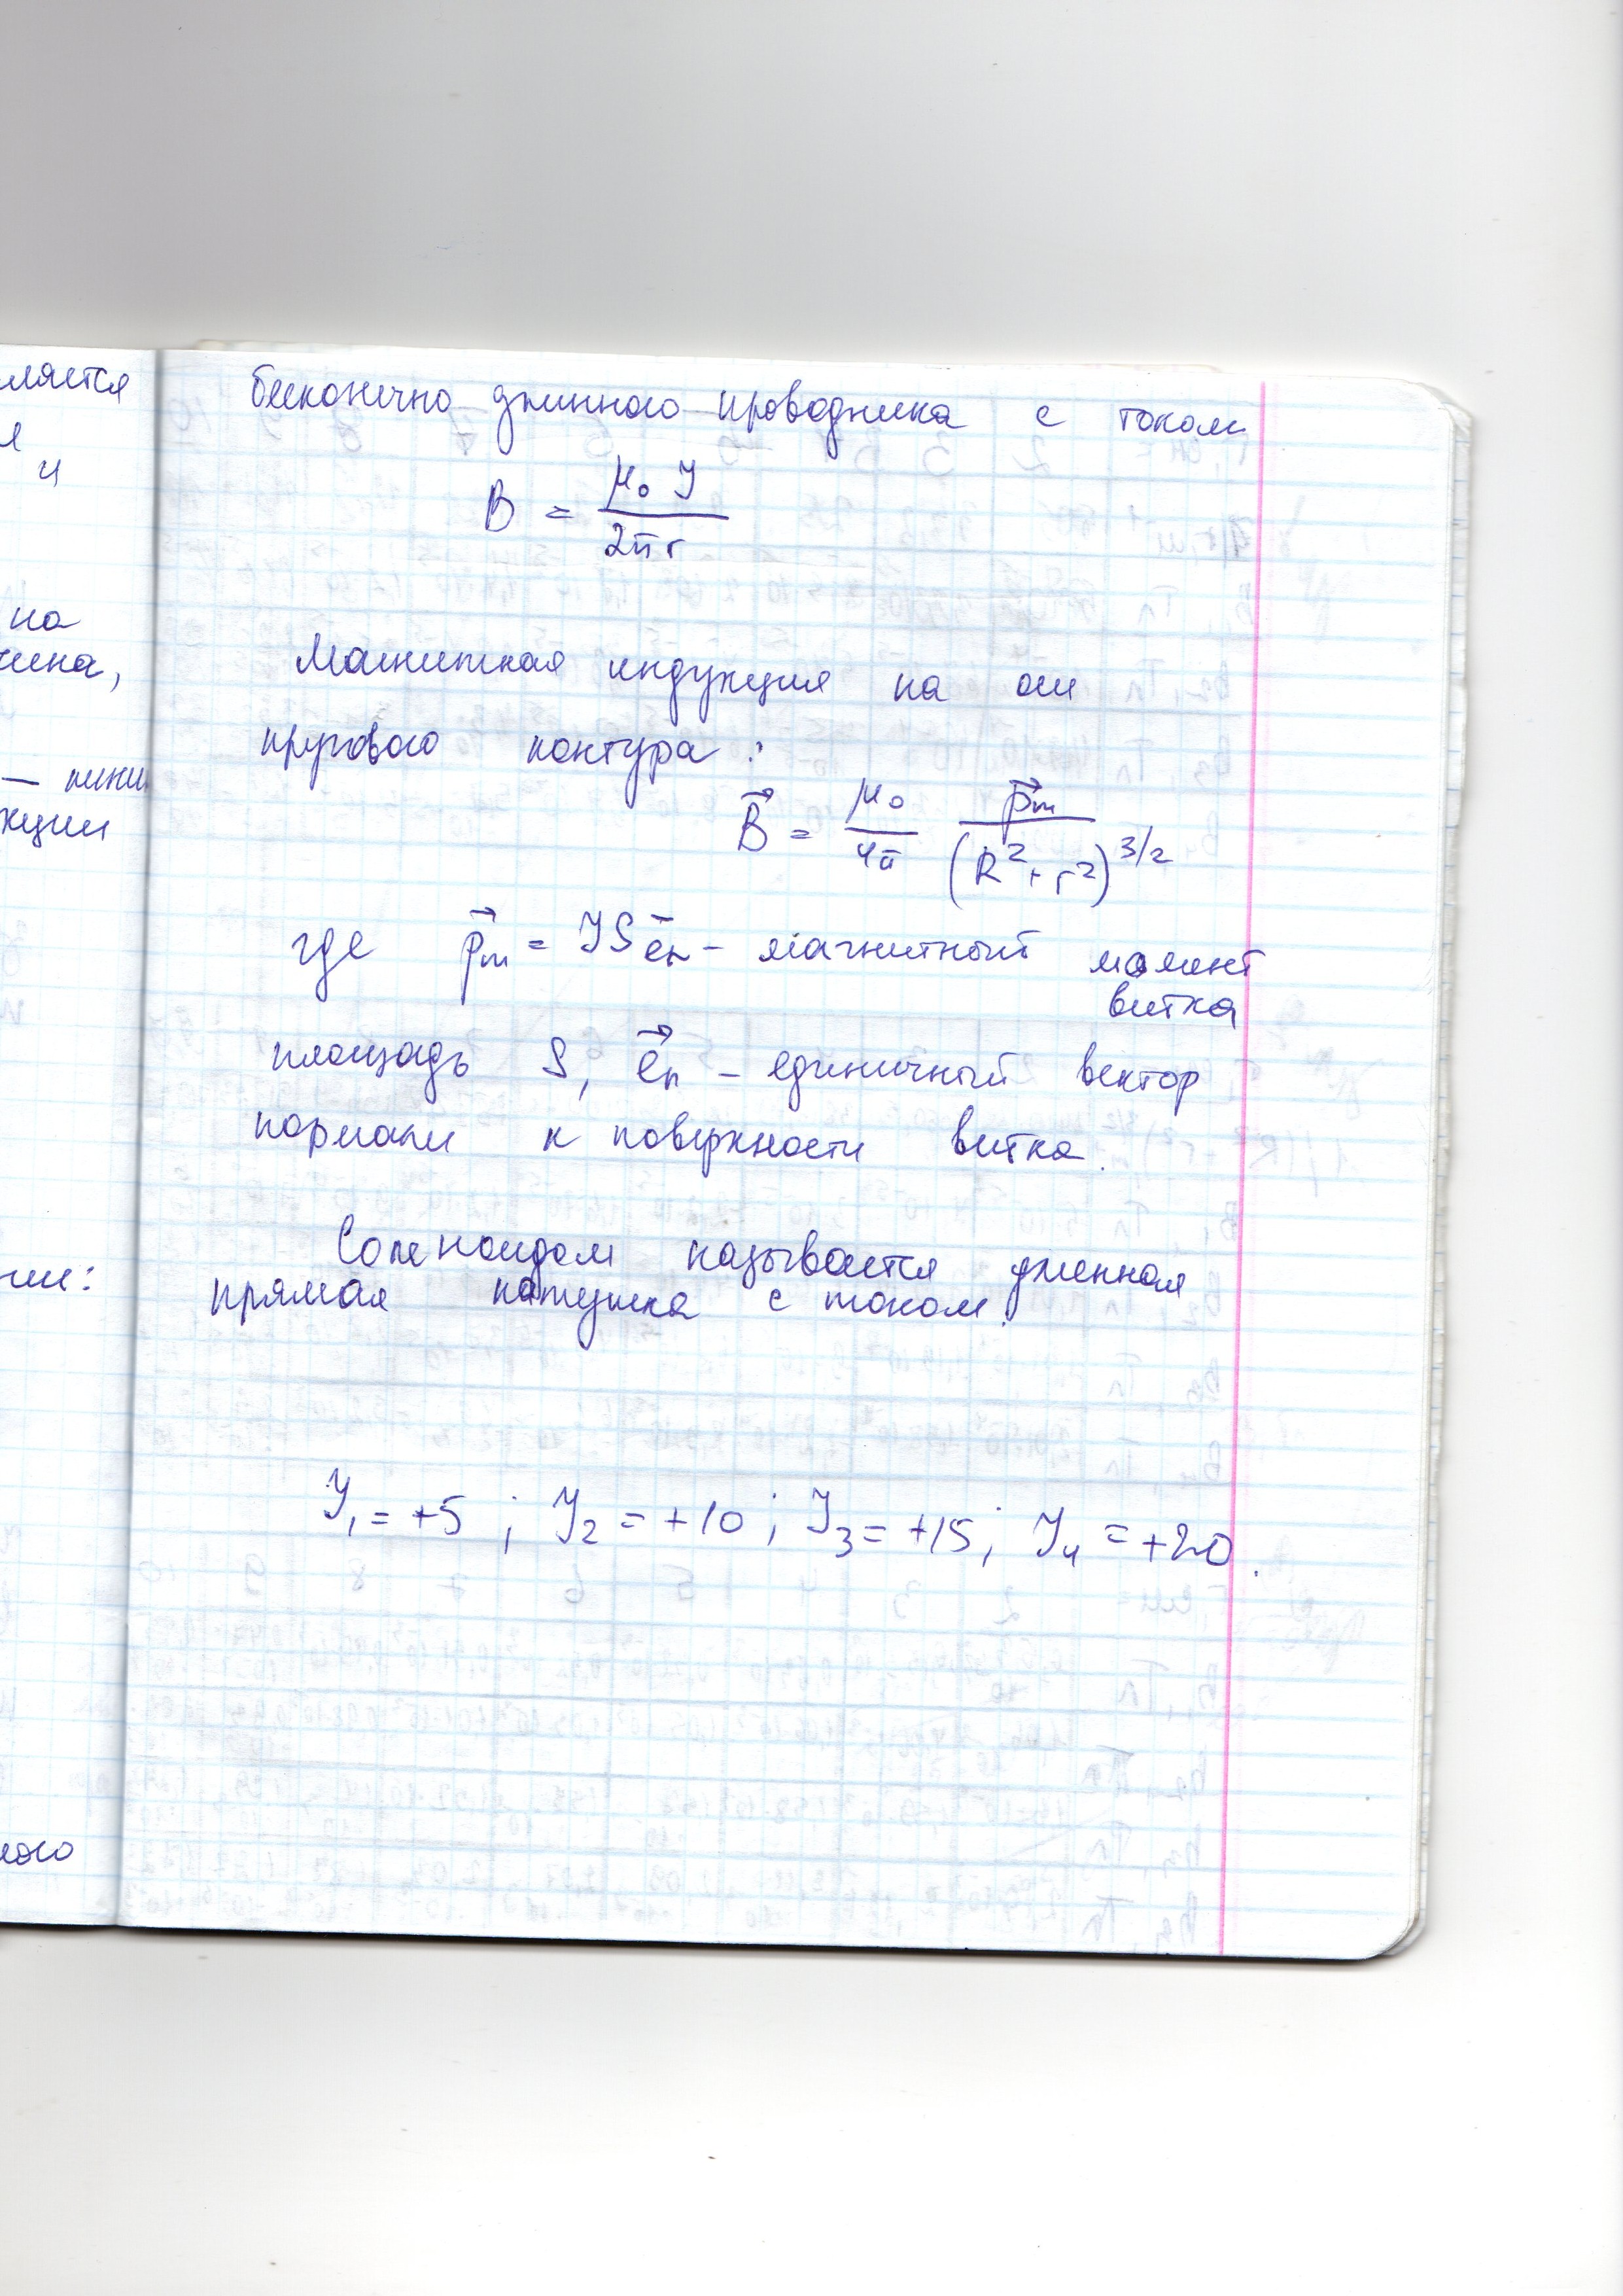 ляется
я
и
на
жина,
— лини
кции
нии:
ного
бесконечно длинного проводника с током
B = μ₀ I / 2πr
Магнитная индукция на оси
кругового контура:
B⃗ = μ₀/4π p⃗m/(R² + r²)^3/2
где p⃗m = IS e⃗n – магнитный момент
витка
площадь S, e⃗n – единичный вектор
нормали к поверхности витка.
Соленоидом называется длинная
прямая катушка с током.
I₁ = +5 ; I₂ = +10 ; I₃ = +15 ; I₄ = +20.